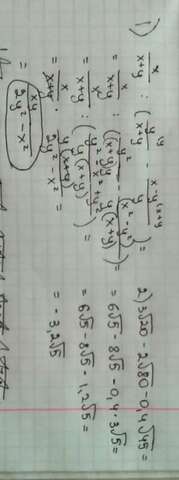 1) x/(x+y) : (y/(x+y) - (x-y)/y ) =
= x/(x+y) : (y/(x+y) - (x²-y²)/(y(x+y)) ) =
= x/(x+y) : ( (y²-x²+y²)/(y(x+y)) ) =
= x/(x+y) · y(x+y)/(2y²-x²) =
= xy/(2y²-x²)
2) 3√20 - 2√80 - 0,4√45 =
= 6√5 - 8√5 - 0,4·3√5 =
= 6√5 - 8√5 - 1,2√5 =
= -3,2√5